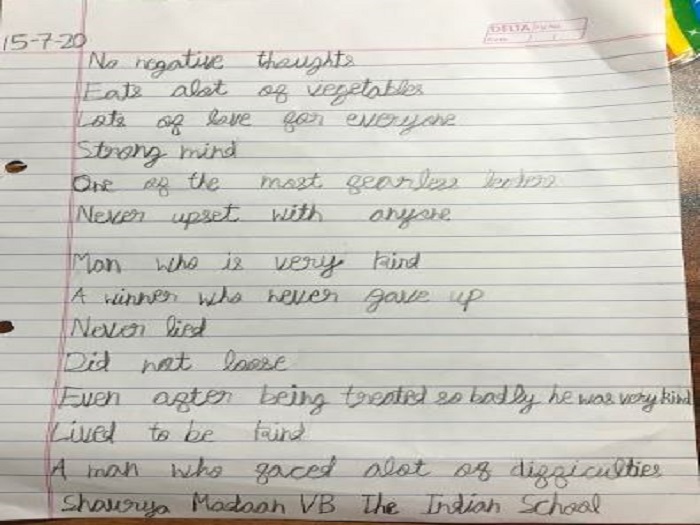 DELTA
15-7-20
No negative thoughts
Eats alot of vegetables
Lots of love for everyone
Strong mind
One of the most fearless leaders
Never upset with anyone
Man who is very kind
A winner who never gave up
Never lied
Did not loose
Even after being treated so badly he was very kind
Lived to be kind
A man who faced alot of difficulties
Shaurya Madaan VB The Indian School